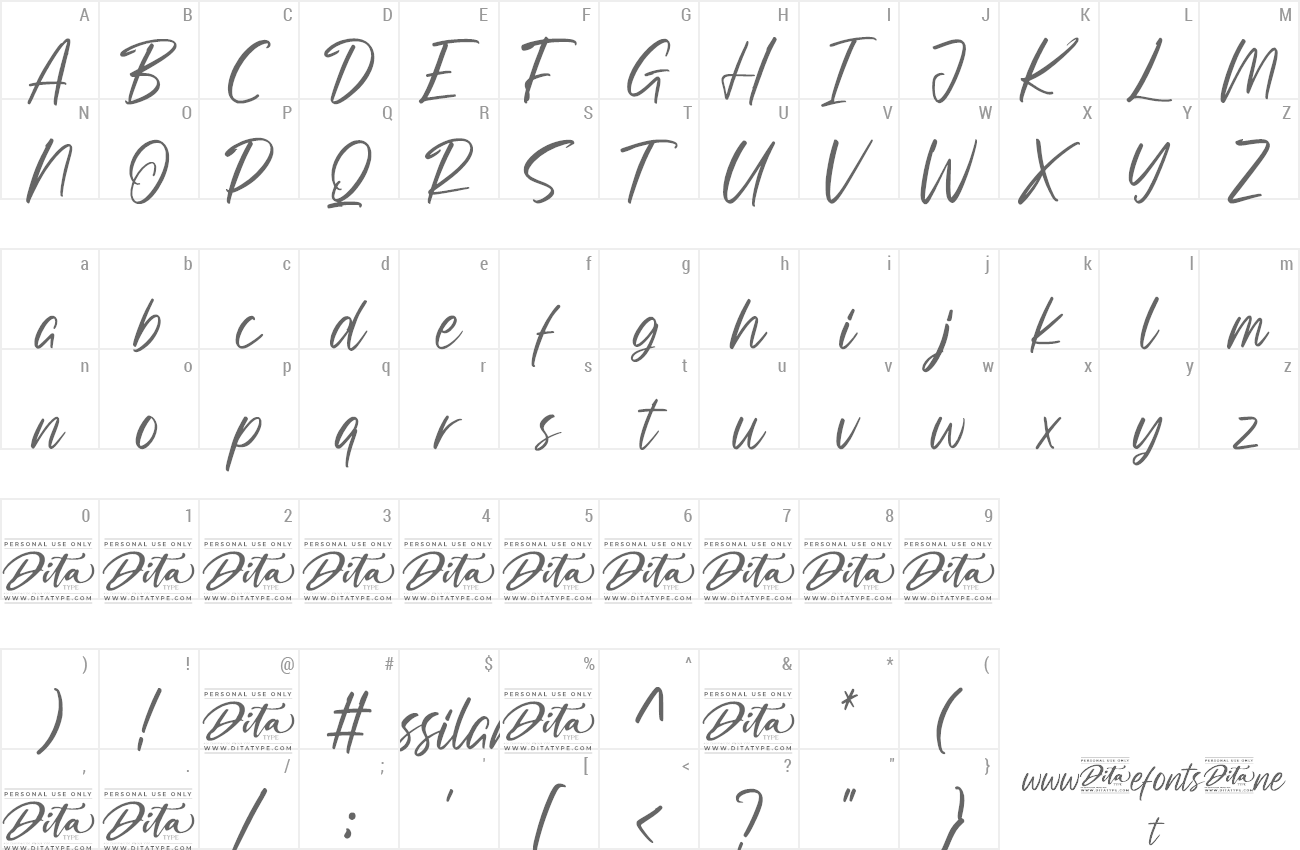 A B C D E F G H I J K L M
A B C D E F G H I J K L M
N O P Q R S T U V W X Y Z
N O P Q R S T U V W X Y Z
a b c d e f g h i j k l m
a b c d e f g h i j k l m
n o p q r s t u v w x y z
n o p q r s t u v w x y z
0 1 2 3 4 5 6 7 8 9
PERSONAL USE ONLY PERSONAL USE ONLY PERSONAL USE ONLY PERSONAL USE ONLY PERSONAL USE ONLY PERSONAL USE ONLY PERSONAL USE ONLY PERSONAL USE ONLY PERSONAL USE ONLY PERSONAL USE ONLY
Dita Dita Dita Dita Dita Dita Dita Dita Dita Dita
TYPE TYPE TYPE TYPE TYPE TYPE TYPE TYPE TYPE TYPE
WWW.DITATYPE.COM WWW.DITATYPE.COM WWW.DITATYPE.COM WWW.DITATYPE.COM WWW.DITATYPE.COM WWW.DITATYPE.COM WWW.DITATYPE.COM WWW.DITATYPE.COM WWW.DITATYPE.COM WWW.DITATYPE.COM
) ! @ # $ % ^ & * (
PERSONAL USE ONLY PERSONAL USE ONLY PERSONAL USE ONLY
) ! Dita # ssilan Dita ^ Dita * (
TYPE TYPE TYPE
WWW.DITATYPE.COM WWW.DITATYPE.COM WWW.DITATYPE.COM
, . / ; ' [ < ? " }
PERSONAL USE ONLY PERSONAL USE ONLY
Dita Dita / ; ' [ < ? " }
TYPE TYPE
WWW.DITATYPE.COM WWW.DITATYPE.COM
PERSONAL USE ONLY PERSONAL USE ONLY
wwwDitaefontsDitane
WWW.DITATYPE.COM WWW.DITATYPE.COM
t